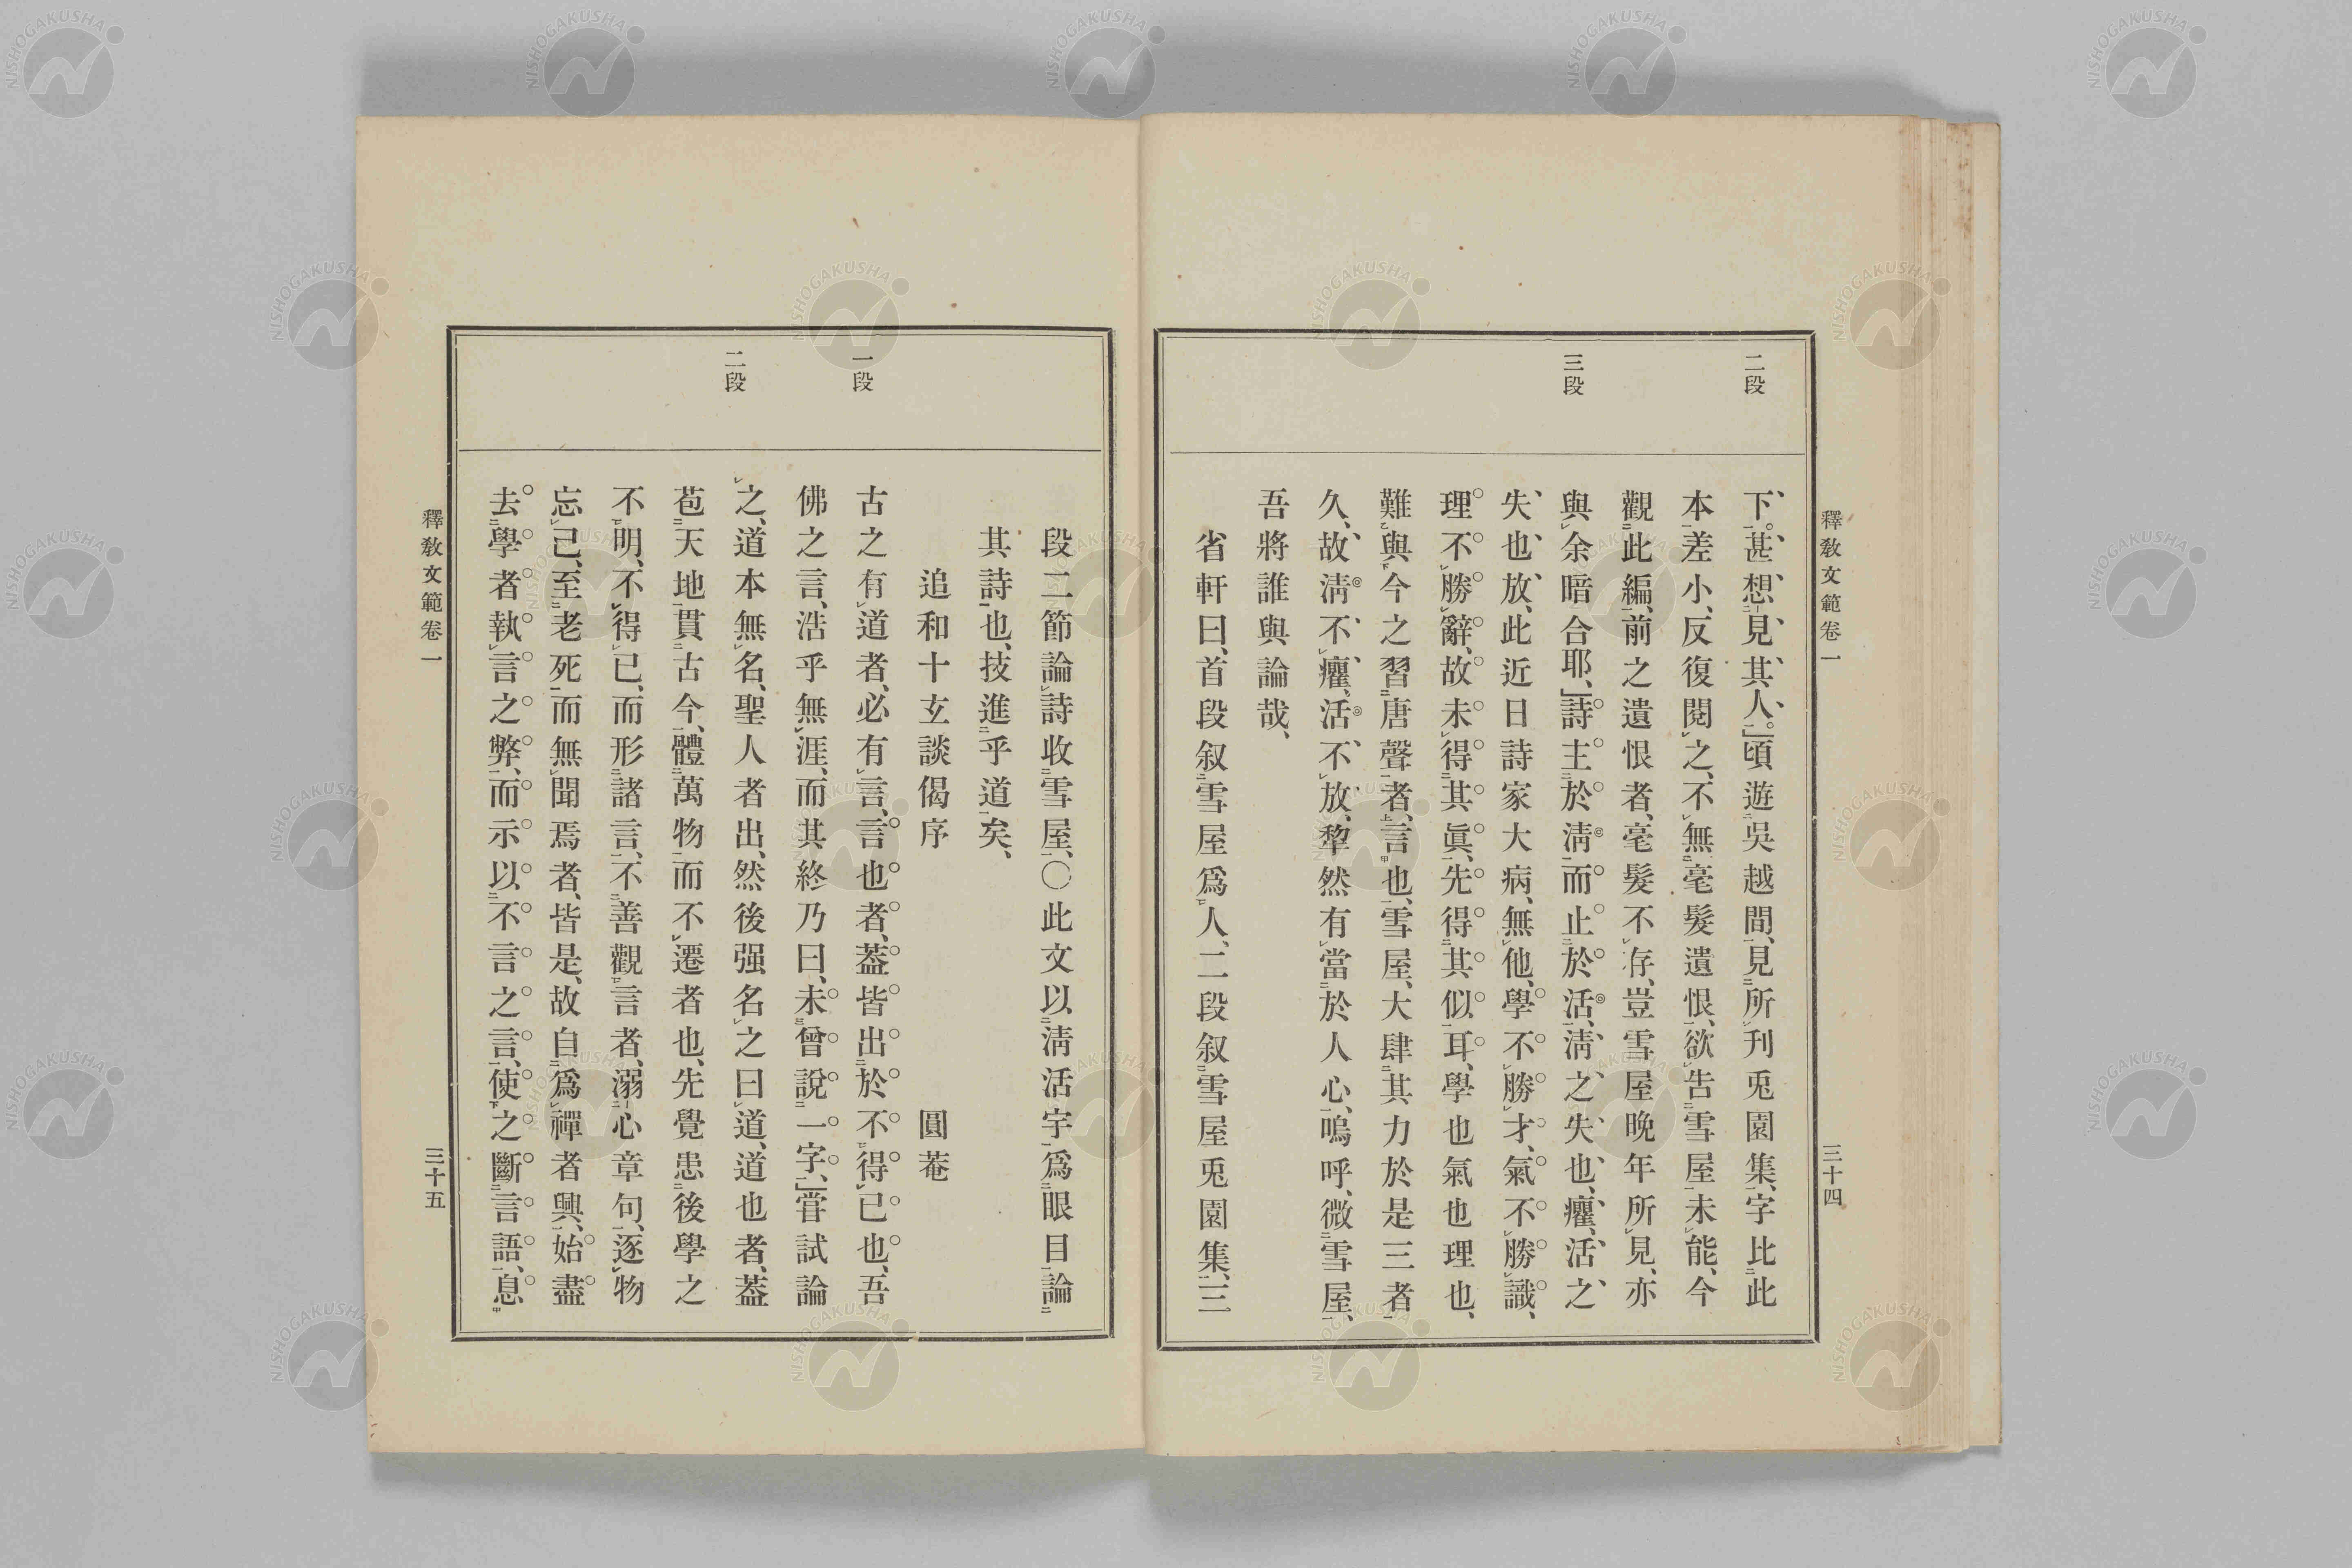 釋敎文範卷一
三十四
二段
三段
下、甚想見其人、」頃遊吳越間、見所刋兎園集、字比此
本差小、反復閱之、不無毫髮遺恨、欲吿雪屋未能、今
觀此編、前之遺恨者、毫髮不存、豈雪屋晚年所見、亦
與余暗合耶、」詩主於淸而止於活、淸之失也、癯、活之
失也放、此近日詩家大病、無他、學不勝才、氣不勝識、
理不勝辭、故未得其眞、先得其似耳、學也氣也理也、
難與今之習唐聲者言也、雪屋、大肆其力於是三者
久、故淸不癯、活不放、犂然有當於人心、嗚呼、微雪屋、
吾將誰與論哉、
省軒曰、首段叙雪屋爲人、二段叙雪屋兎園集、三
段二節論詩收雪屋、〇此文以淸活字爲眼目、論
其詩也、技進乎道矣、
追和十玄談偈序 圓菴
一段
古之有道者、必有言、言也者、葢皆出於不得已也、吾
佛之言、浩乎無涯、而其終乃曰、未曾說一字、」嘗試論
二段
之、道本無名、聖人者出、然後强名之曰道、道也者、葢
苞天地貫古今、體萬物而不遷者也、先覺患後學之
不明、不得已、而形諸言、不善觀言者、溺心章句、逐物
忘已、至老死而無聞焉者、皆是、故自爲禪者興、始盡
去學者執言之弊、而示以不言之言、使之斷言語、息
釋敎文範卷一
三十五